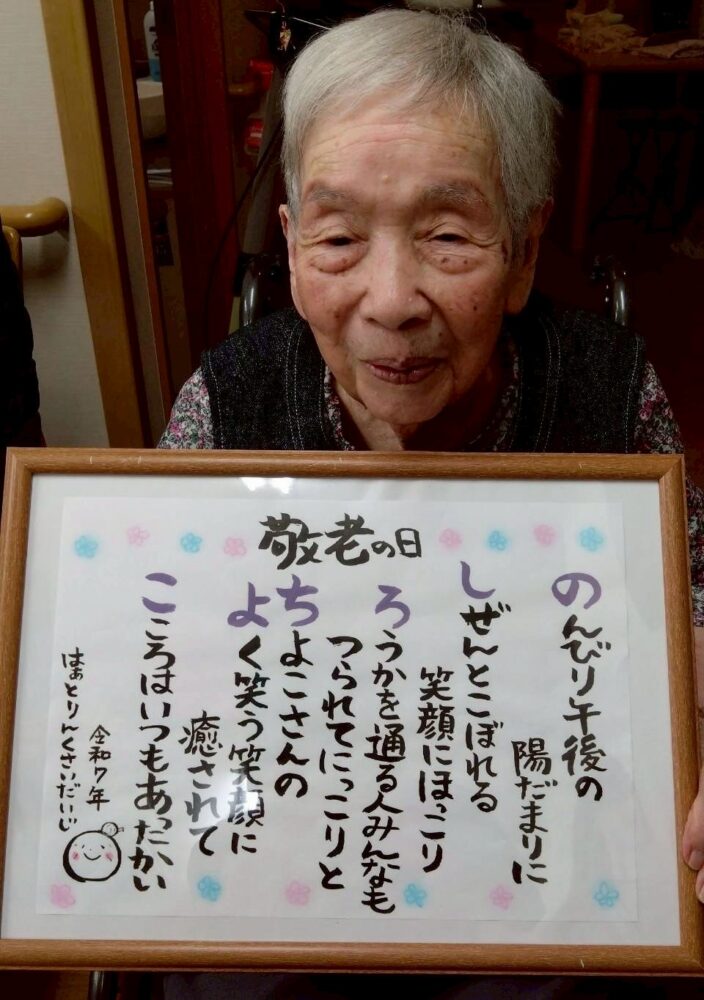 敬老の日
のんびり午後の
陽だまりに
しぜんとこぼれる
笑顔にほっこり
ろうかを通る人みんなも
つられてにっこりと
ちよこさんの
よく笑う笑顔に
癒されて
こころはいつもあったかい
令和7年
はぁとりんくさいだいじ